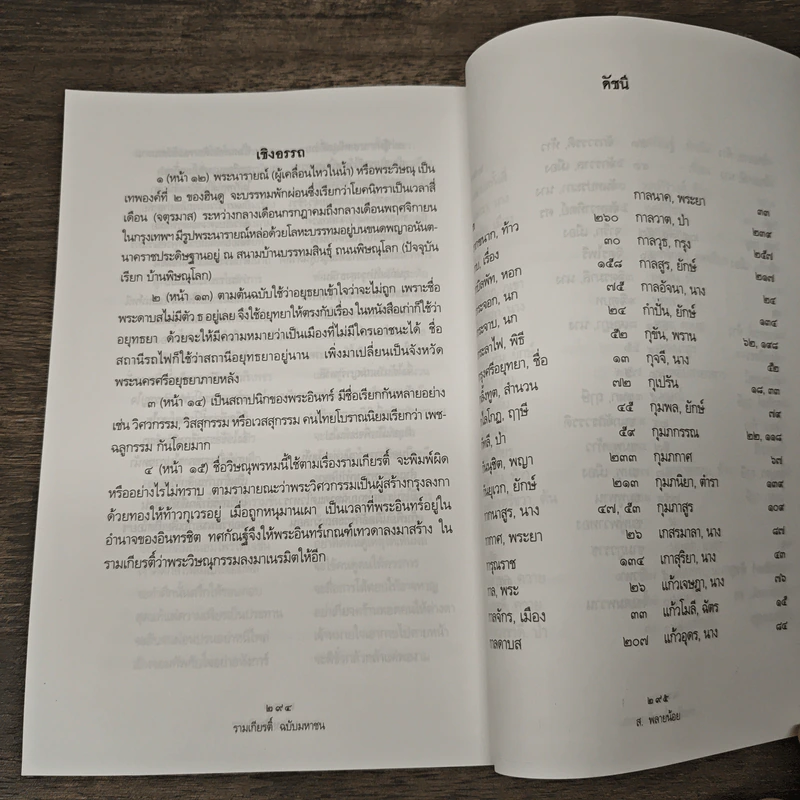 เชิงอรรถ
๑ (หน้า ๑๒) พระนารายณ์ (ผู้เคลื่อนไหวในน้ำ) หรือพระวิษณุ เป็น
เทพองค์ที่ ๒ ของฮินดู จะบรรทมพักผ่อนซึ่งเรียกว่าโยคนิทราเป็นเวลาสี่
เดือน (จตุรมาส) ระหว่างกลางเดือนกรกฎาคมถึงกลางเดือนพฤศจิกายน
ในกรุงเทพฯ มีรูปพระนารายณ์หล่อด้วยโลหะบรรทมอยู่บนขนดพญาอนันต-
นาคราชประดิษฐานอยู่ ณ สนามบ้านบรรทมสินธุ์ ถนนพิษณุโลก (ปัจจุบัน
เรียก บ้านพิษณุโลก)
๒ (หน้า ๑๓) ตามต้นฉบับใช้ว่าอยุธยาเข้าใจว่าจะไม่ถูก เพราะชื่อ
พระดาบสไม่มีตัว ธ อยู่เลย จึงใช้อยุทยาให้ตรงกับเรื่อง ในหนังสือเก่าก็ใช้ว่า
อยุทธยา ด้วยจะให้มีความหมายว่าเป็นเมืองที่ไม่มีใครเอาชนะได้ ชื่อ
สถานีรถไฟก็ใช้ว่าสถานีอยุทธยาอยู่นาน เพิ่งมาเปลี่ยนเป็นจังหวัด
พระนครศรีอยุธยาภายหลัง
๓ (หน้า ๑๔) เป็นสถาปนิกของพระอินทร์ มีชื่อเรียกกันหลายอย่าง
เช่น วิศวกรรม, วิสสุกรรม หรือเวสสุกรรม คนไทยโบราณนิยมเรียกว่า เพช-
ฉลูกรรม กันโดยมาก
๔ (หน้า ๑๕) ชื่อวิษณุพรหมนี้ใช้ตามเรื่องรามเกียรติ์ จะพิมพ์ผิด
หรืออย่างไรไม่ทราบ ตามรามายณะว่าพระวิศวกรรมเป็นผู้สร้างกรุงลงกา
ด้วยทองให้ท้าวกุเวรอยู่ เมื่อถูกหนุมานเผา เป็นเวลาที่พระอินทร์อยู่ใน
อำนาจของอินทรชิต ทศกัณฐ์จึงให้พระอินทร์เกณฑ์เทวดาลงมาสร้าง ใน
รามเกียรติ์ว่าพระวิษณุกรรมลงมาเนรมิตให้อีก
๒๙๔
รามเกียรติ์ ฉบับมหาชน
ดัชนี
ท้าว ๒๖๐
เรื่อง ๓๐
หอก ๑๕๘
นก ๗๕
นก ๒๔
พิธี ๕๒
ชื่อ ๑๓
สำนวน ๗๒
ฤๅษี ๔๕
ป่า ๕๙
พญา ๒๓๓
ยักษ์ ๒๑๓
นาง ๔๗, ๕๓
พระยา ๒๖
๑๓๔
พระ ๒๖
เมือง ๓๓
๒๐๗
กาลนาค, พระยา ๓๓
กาลวาต, ป่า ๒๓๙
กาลวุธ, กรุง ๒๕๗
กาลสูร, ยักษ์ ๒๑๗
กาลอัจนา, นาง ๒๔
กำปั่น, ยักษ์ ๑๓๔
กุขัน, พราน ๖๒, ๑๙๘
กุจจี, นาง ๕๒
กุเปรัน ๑๘, ๓๓
กุมพล, ยักษ์ ๗๙
กุมภกรรณ ๒๒, ๑๑๘
กุมภกาศ ๖๗
กุมภนิยา, ตำรา ๑๓๙
กุมภาสูร ๑๐๙
เกสรมาลา, นาง ๘๗
เกาสุริยา, นาง ๔๓
แก้วเจษฎา, นาง ๗๖
แก้วโมลี, ฉัตร ๑๕
แก้วอุดร, นาง ๘๔
๒๙๕
ส. พลายน้อย